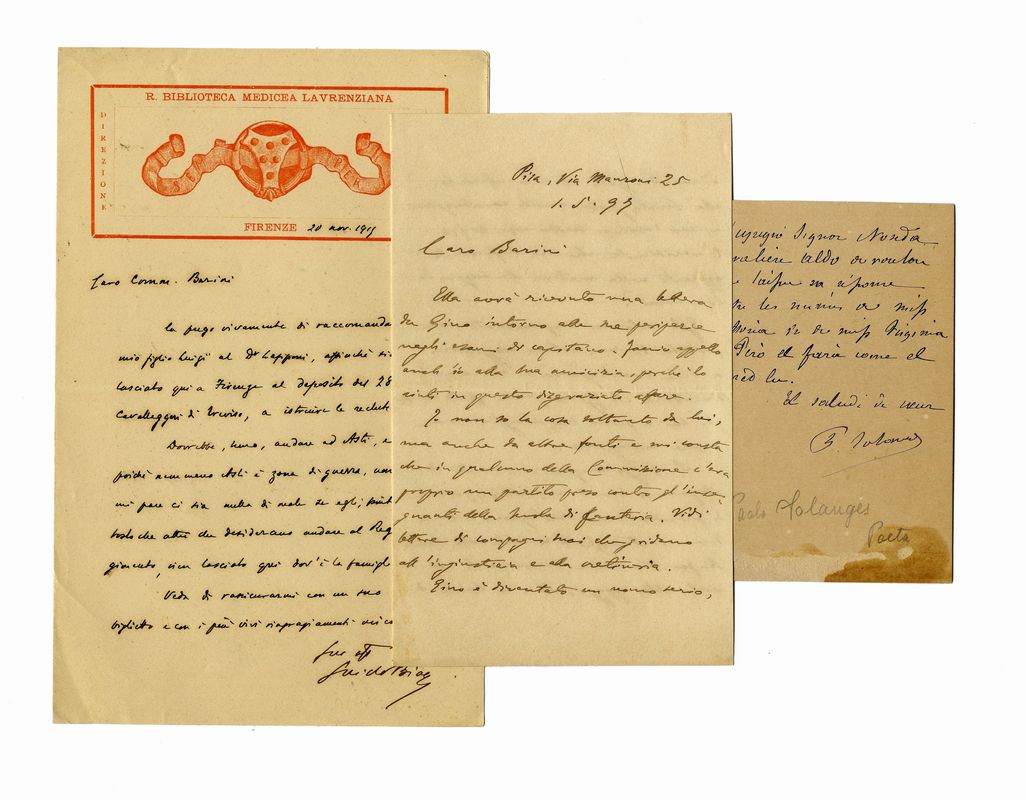 R. BIBLIOTECA MEDICEA LAVRENZIANA
DIREZIONE
SEM PER
FIRENZE 20 nov. 1915
Caro Comm. Barini
La prego vivamente di raccomanda
mio figlio Luigi al Dr Lapponi, affinché sia
lasciato qui a Firenze al deposito del 28
Cavalleggeri di Treviso, a istruire le reclute
Dovrebbe, invece, andare ad Asti, e
poiché nemmeno Asti è zona di guerra, non
mi pare ci sia nulla di male se egli, piut
tosto che altri che desiderano andare al Reg
gimento, vien lasciato qui dov'è la famigl
Veda di rassicurarmi con un suo
biglietto e con i più vivi ringraziamenti
Suo aff
Guido Biagi
Pisa, Via Manzoni 25
1. 5. 97
Caro Barini
Ella avrà ricevuto una lettera
da Gino intorno alle sue peripezie
negli esami di capitano. Faccio appello
anch'io alla sua amicizia perché lo
aiuti in questo disgraziato affare.
Io non so la cosa soltanto da lui,
ma anche da altre fonti e mi consta
che in qualcuno della Commissione c'era
proprio un partito preso contro gl'inse-
gnanti della scuola di fanteria. Vidi
lettere di compagni suoi che gridano
all'ingiustizia e alla
Gino è diventato un uomo serio,
Signor
Aldo
de miss
de miss Virginia
Però el farà come el
cred lu.
El saludi de cuor
Paolo Solanges
Poeta